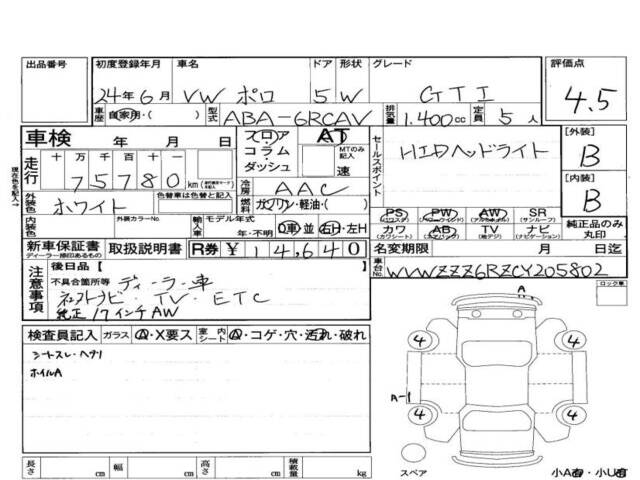 出品番号 初度登録年月 車名 ドア 形状 グレード 評価点
24年6月 VW ポロ 5 W GTI 4.5
車歴 自家用・( ) 型式 ABA-6RCAV 排気量 1.400cc 定員 5人
車検 年 月 日 フロア・コラム・ダッシュ AT MTのみ記入 速
セールスポイント HIDヘッドライト
[外装] B
[内装] B
走行 十 万 千 百 十 一 75780 km
冷房 AAC
外装色 ホワイト 色替車は色替と記入 燃料 ガソリン・軽油・( )
内装色 外装カラーNo. 輸入車 モデル年式 年・不明 D車・並 右H・左H
PS (パワステ) PW (パワーウインドウ) AW (アルミホイール) SR (サンルーフ) 純正品のみ丸印
カワ (カワシート) AB (エアバッグ) TV (地デジ) ナビ (ナビゲーション)
新車保証書 ディーラー捺印あるもの 取扱説明書 R券 ¥14,640 名変期限 月 日迄
注意事項 後日品【 】
車台No. WVWZZZ6RZCY205802
不具合箇所等 ディーラー車
TV・ETC
純正17インチAW
ロック車
現在色を記入→
検査員記入 ガラス A・X要ス 室内シート A・コゲ・穴・汚れ・破れ
シートスレ・ヘタリ
ホイルA
A
4 4
A-1
4 4
長さ cm 幅 cm 高さ cm 積載量 kg
スペア